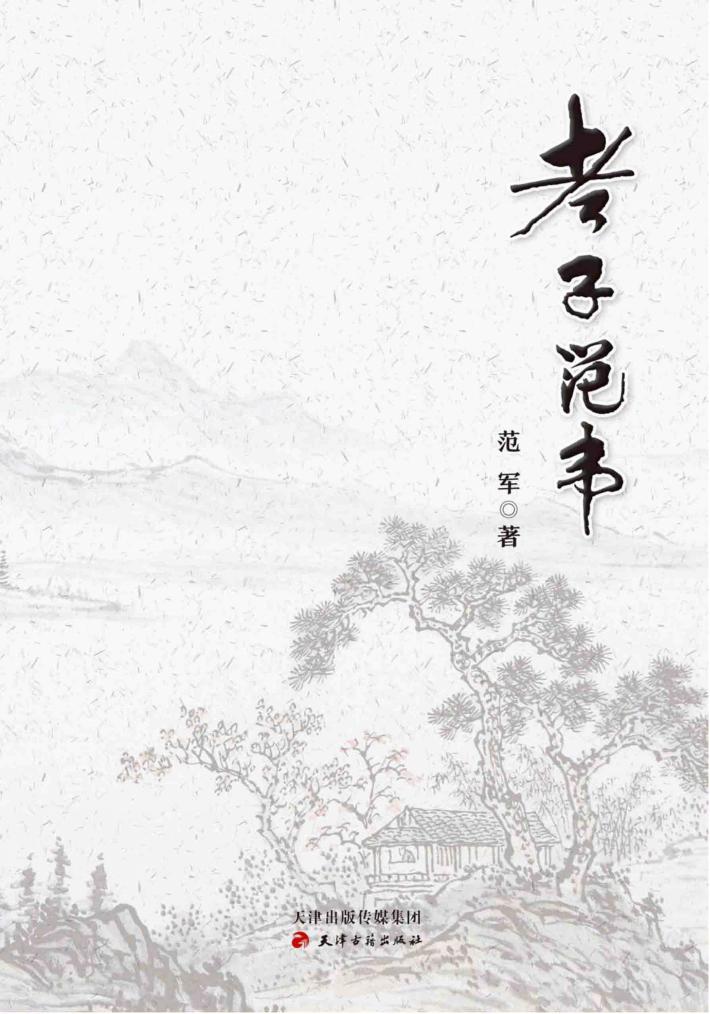 老子范韦
范军◎著
天津出版传媒集团
天津古籍出版社